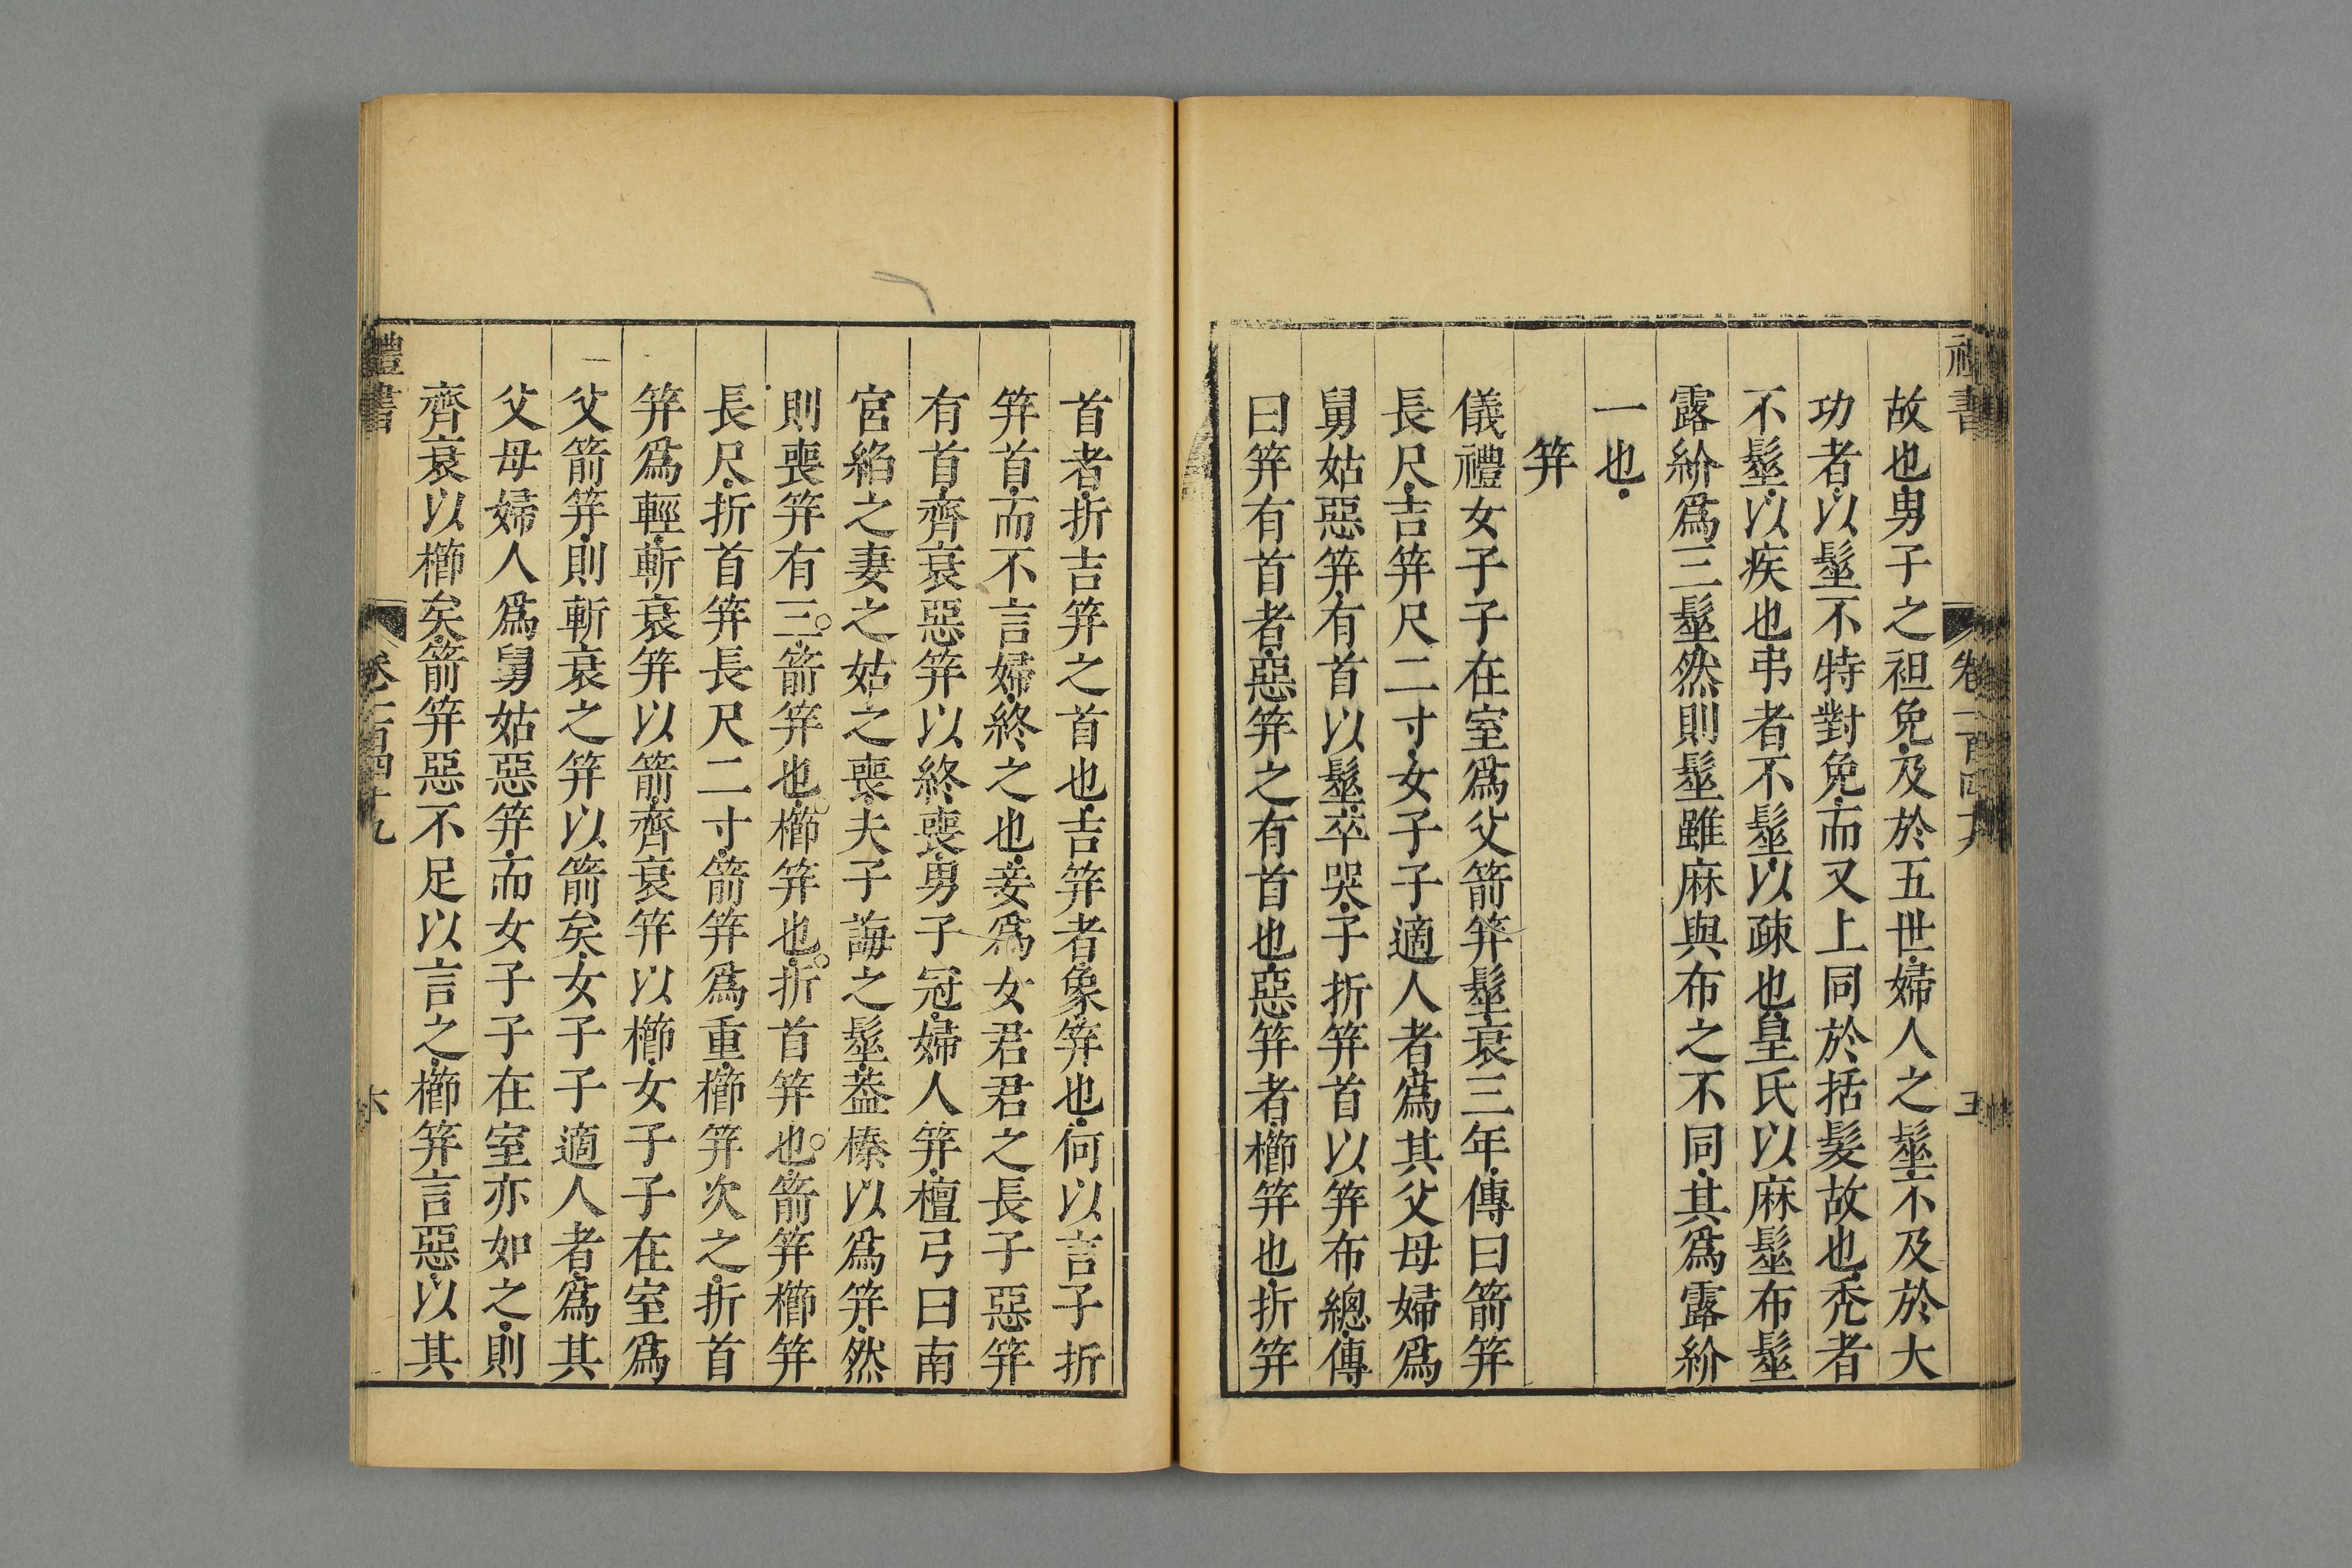 禮書 卷一百四十九 五
故也男子之袒免及於五世婦人之髽不及於大
功者以髽不特對免而又上同於括髮故也禿者
不髽以疾也弔者不髽以疎也皇氏以麻髽布髽
露紒爲三髽然則髽雖麻與布之不同其爲露紒
一也
笄
儀禮女子子在室爲父箭笄髽衰三年傳曰箭笄
長尺吉笄尺二寸女子子適人者爲其父母婦爲
舅姑惡笄有首以髽卒哭子折笄首以笄布總傳
曰笄有首者惡笄之有首也惡笄者櫛笄也折笄
首者折吉笄之首也吉笄者象笄也何以言子折
笄首而不言婦終之也妾爲女君君之長子惡笄
有首齊衰惡笄以終喪男子冠婦人笄檀弓曰南
宮縚之妻之姑之喪夫子誨之髽蓋榛以爲笄然
則喪笄有三箭笄也櫛笄也折首笄也箭笄櫛笄
長尺折首笄長尺二寸箭笄爲重櫛笄次之折首
笄爲輕斬衰笄以箭齊衰笄以櫛女子子在室爲
父箭笄則斬衰之笄以箭矣女子子適人者爲其
父母婦人爲舅姑惡笄而女子子在室亦如之則
齊衰以櫛矣箭笄惡不足以言之櫛笄言惡以其
禮書 卷一百四十九 六